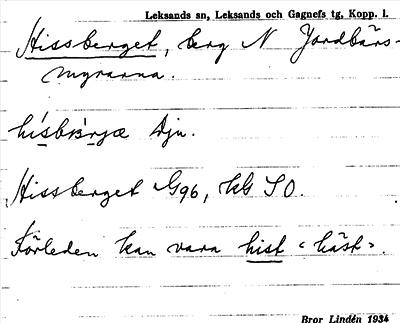 Leksands sn, Leksands och Gagnefs tg, Kopp. l.
Hissberget, berg N Jordbärs-
myrarna.
Hissberget G96, kbl SO.
Förleden kan vara hist "häst".
Bror Lindén 1934